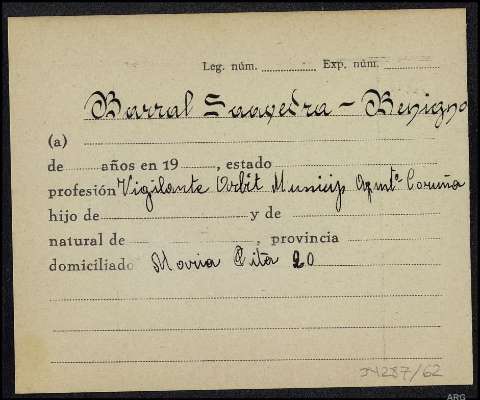 Leg. núm. Exp. núm.
Barral Saavedra - Benigno
(a)
de años en 19 , estado
profesión Vigilante Arbit Municip Aymtº Coruña
hijo de y de
natural de , provincia
domiciliado Maria Pita 20
34287/62
ARG